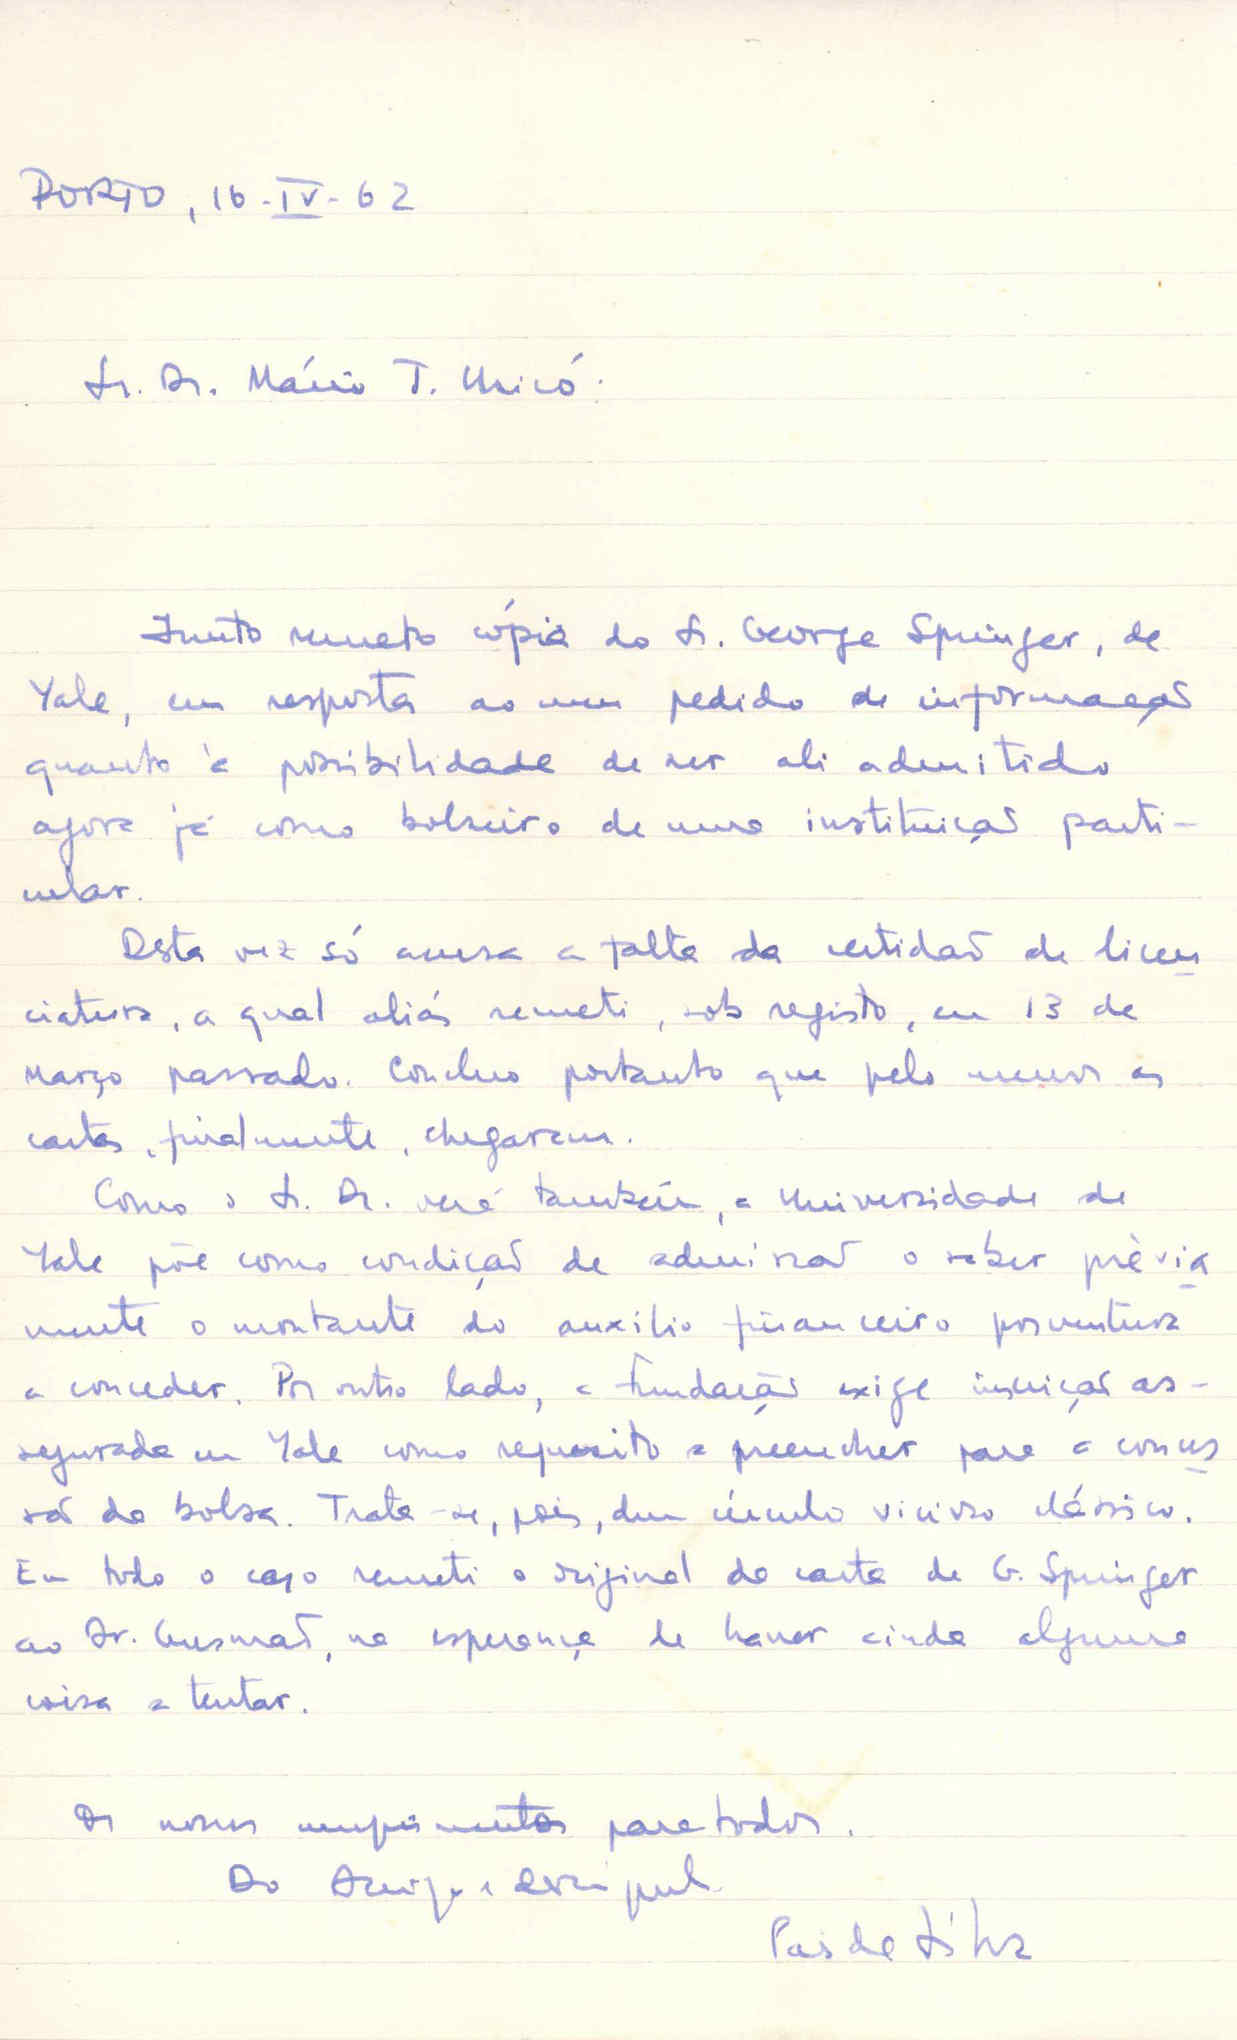 PORTO, 16-IV-62
Sr. Dr. Mário T.
Junto remeto cópia do Sr. George Springer, de
Yale, em resposta ao meu pedido de informação
quanto à possibilidade de ser ali admitido
agora já como bolseiro de uma instituição parti-
cular.
Desta vez só acusa a falta da certidão de licen
ciatura, a qual aliás remeti, sob registo, em 13 de
Março passado. Concluo portanto que pelo menos as
cartas, finalmente, chegaram.
Como o Sr. Dr. verá também, a Universidade de
Yale põe como condição de admissão o saber prèvia
mente o montante do auxílio financeiro porventura
a conceder. Por outro lado, a Fundação exige inscrição as-
segurada em Yale como requesito a preencher para a conces
são da bolsa. Trata-se, pois, dum círculo vicioso clássico.
Em todo o caso remeti o original da carta de G. Springer
ao Dr. Gusmão, na esperança de haver ainda alguma
coisa a tentar.
Os nossos cumprimentos para todos.
Do Amigo e discípulo
Pais da Silva